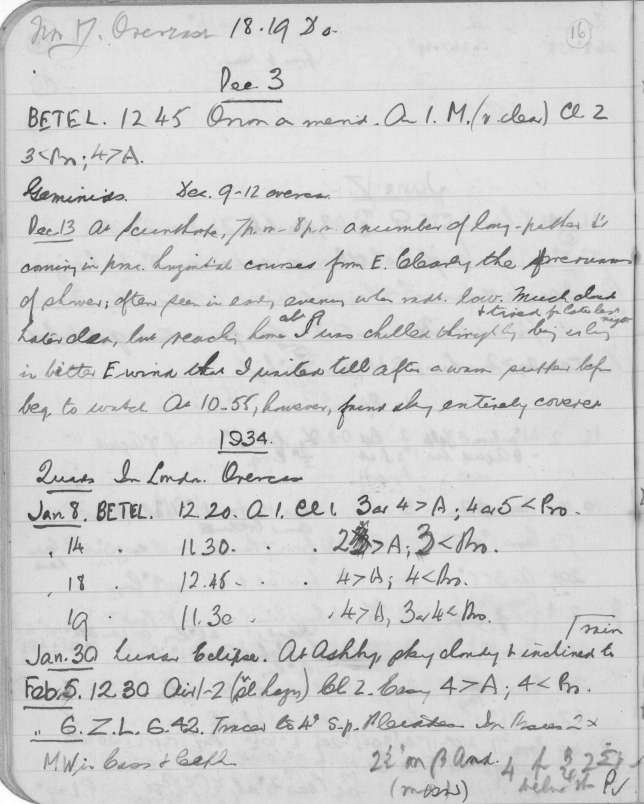 Nov 17. Overcast 18.19 Do.
16
Dec. 3
BETEL. 12 45 Orion on merid. Air 1. M. (v clear) Cl. 2
3 < Pro; 4 > A.
Geminids. Dec. 9-12 overcast
Dec. 13 At Scunthorpe, 7p.m - 8p.m a number of long-pathed
coming in horizontal courses from E. Clearly the forerunners
of shower; often seen in early evening when radt. low. Much cloud
Later clear, but reaching home I was chilled through by being
& tired
in bitter E wind that I waited till after a warm supper bef
beg. to watch At 10-55, however, found sky entirely covered
1934.
Quads In London. Overcast
Jan. 8. BETEL. 12.20. A 1. Cl 1. 3 or 4 > A; 4 or 5 < Pro.
" 14 . 11.30. . . > A; 3 < Pro.
" 18 . 12.45 . . . 4 > A; 4 < Pro.
19 11.30 . . 4 > A, 3 or 4 < Pro.
Jan. 30 Lunar Eclipse. At Ashby, sky cloudy & inclined to
rain
Feb. 5. 12.30 Air 1-2 (sl hazy) Cl 2. Easy 4 > A; 4 < Pro.
" 6. Z.L. 6.42. Traced to 4° S.p. Pleiades In 2 x
M W in Cass & Ceph 2½° β And. 4